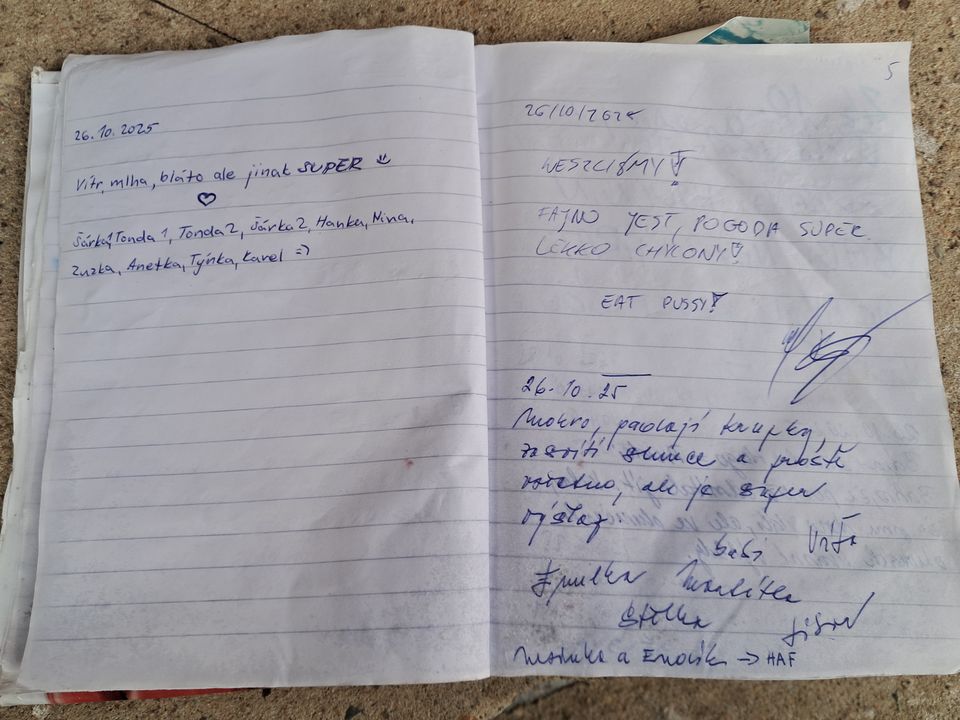 26.10.2025
Vítr, mlha, bláto ale jinak SUPER
Šárka1, Tonda 1, Tonda 2, Šárka 2, Hanka, Nina,
Zuzka, Anetka, Týnka, Karel =)
5
26/10/202
WESZLIŚMY!
FAJNO JEST, POGODA SUPER.
LEKKO CHYCONY!
EAT PUSSY!
26.10.25
Mokro, padají krupky,
zasvítí slunce a prostě
všechno, ale je super
výšlap
babi Víťa
Markétka
HAF